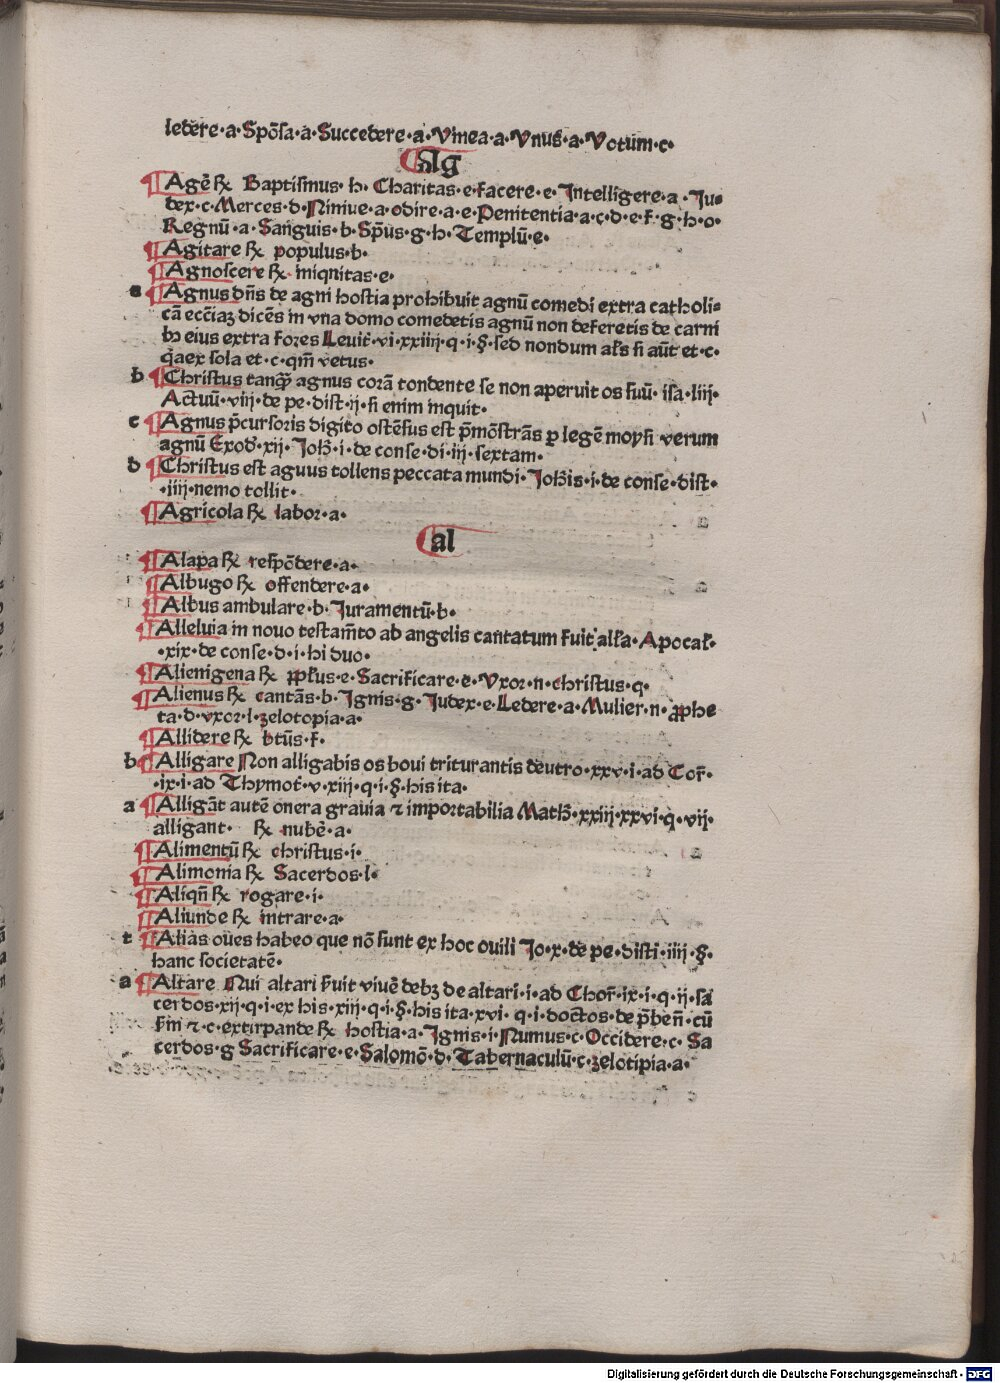 ledere·a·Spōsa·a·Succedere·a·Vinea·a·Vnus·a·Votum·c·
Ag
Agē℞ Baptismus·h·Charitas·e·facere·e·Intelligere·a·Ju⸗
dex·c·Merces·d·Niniue·a·odire·a·e·Penitentia·a·c·d·e·f·g·h·o·
Regnū·a·Sanguis·b·Sp̄us·g·h·Templū·e·
Agitare ℞ populus·b·
Agnoscere ℞ iniqnitas·e·
a Agnus dn̄s de agni hostia prohibuit agnū comedi extra catholi⸗
cā ecc̄iaꝫ dicēs in vna domo comedetis agnū non deferetis de carni
bꝫ eius extra fores Leuit̄·vi·xxiiij·q·i·§·sed nondum al̄s si aūt et·c·
q̄aex sola et·c·qm̄ vetus·
b Christus tanqꝫ agnus corā tondente se non aperuit os suū·isa·liij·
Actuū·viij·de pe·dist·ij·si enim inquit·
c Agnus p̄cursoris digito ostēsus est p̄mōstrās ꝑ legē moysi verum
agnū Exod̄·xij·Joh̄·i·de conse·di·iij·sextam·
d Christus est aguus tollens peccata mundi·Joh̄is·i·de conse·dist·
·iiij·nemo tollit·
Agricola ℞ labor·a·
al
Alapa ℞ respōdere·a·
Albugo ℞ offendere·a·
Albus ambulare·b·Juramentū·b·
Alleluia in nouo testam̄to ab angelis cantatum fuit all̄a·Apocal̄·
·xix·de conse·d·i·hi duo·
Alienigena ℞ ꝓpl̄us·e·Sacrificare·e·Vxor·n·christus·q·
Alienus ℞ cantās·b·Ignis·g·Judex·e·Ledere·a·Mulier·n·ꝓphe
ta·d·vxor·l·zelotopia·a·
Allidere ℞ btūs·f·
b Alligare Non alligabis os boui triturantis deutro·xxv·i·ad Cor̄·
·ix·i·ad Thymot̄·v·xiij·q·i·§·his ita·
a Alligāt autē onera grauia ⁊ importabilia Math̄·xxiij·xxvi·q·vij·
alligant· ℞ nubē·a·
Alimentū ℞ christus·i·
Alimonia ℞ Sacerdos·l·
Aliqn̄ ℞ rogare·i·
Aliunde ℞ intrare·a·
t Alias oues habeo que nō sunt ex hoc ouili Jo·x·de pe·disti·iiij·§·
hanc societatē·
a Altare Nui altari fuit viuē debꝫ de altari·i·ad Chor̄·ix·i·q·ij·sā
cerdos·xij·q·i·ex his·xiij·q·i·§·his ita·xvi·q·i·doctos·de p̄ben̄·cū
s̄m ⁊·c·extirpande ℞ hostia·a·Ignis·i·Numus·c·Occidere·c·Sa
cerdos·g Sacrificare·e·Salomō·d·Tabernaculū·c·zelotipia·a·
Digitalisierung gefördert durch die Deutsche Forschungsgemeinschaft - DFG